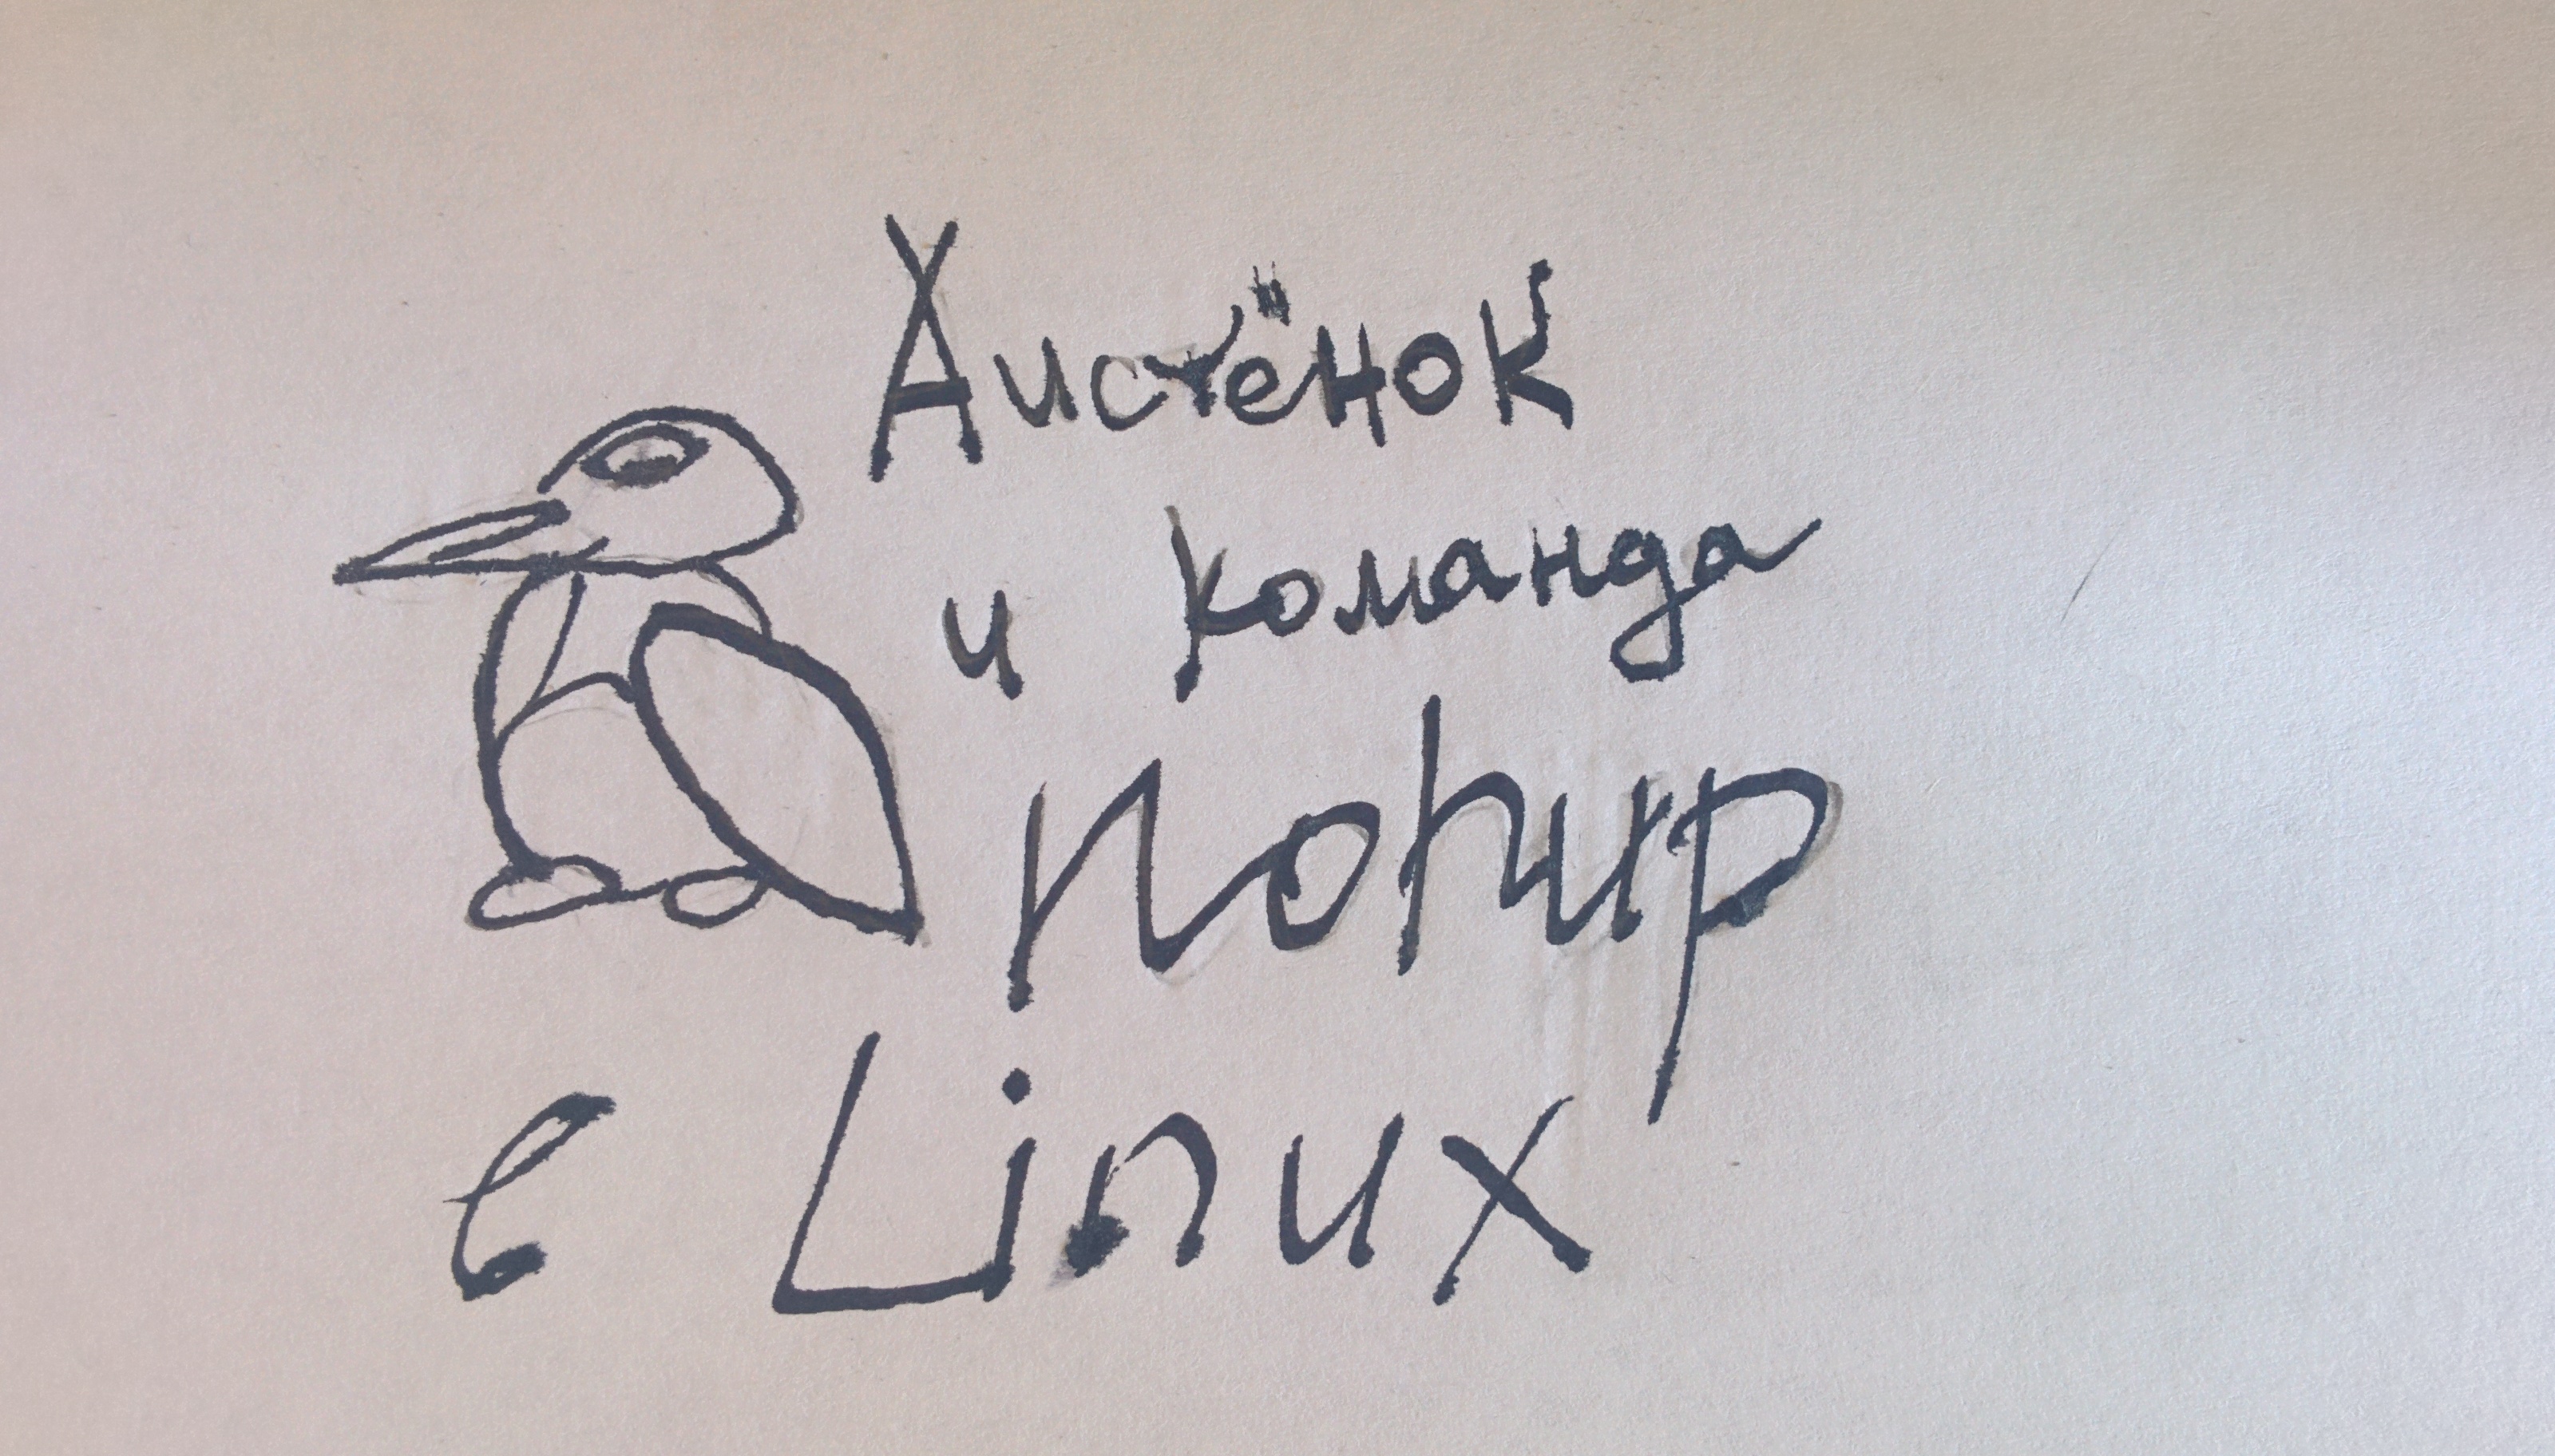 Аистёнок
и команда
nohup
в Linux